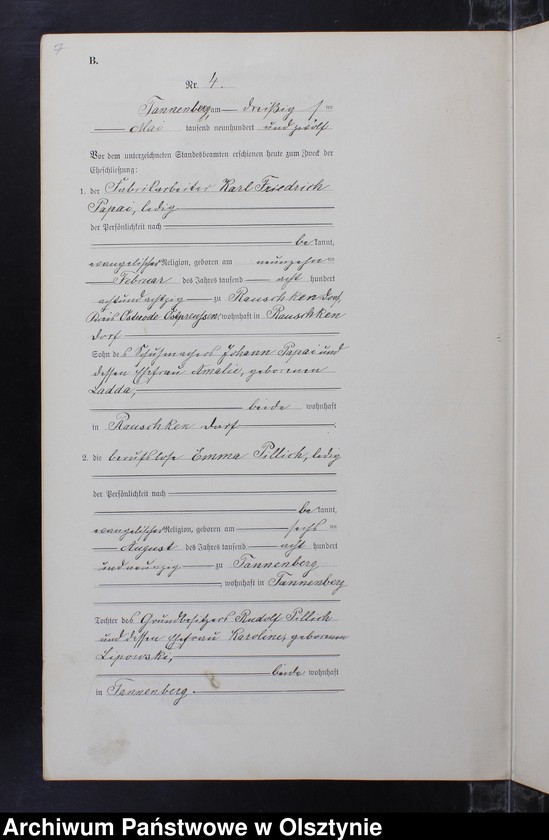 7
B.
Nr. 4.
Tannenberg, am dreißig sten
Mai tausend neunhundert und zwölf
Vor dem unterzeichneten Standesbeamten erschienen heute zum Zweck der
Eheschließung:
1. der Fabrikarbeiter Karl Friedrich
Papai, ledig
der Persönlichkeit nach
be kannt,
evangelischer Religion, geboren am neunzehn ten
Februar des Jahres tausend acht hundert
achtundachtzig zu Rauschken Dorf,
Kreis Osterode Ostpreußen, wohnhaft in Rauschken
Dorf
Sohn des Schuhmachers Johann Papai und
dessen Ehefrau Amalie, geborenen
Ladda,
beide wohnhaft
in Rauschken Dorf.
2. die berufslose Emma Pillich, ledig
der Persönlichkeit nach
be kannt,
evangelischer Religion, geboren am sechs ten
August des Jahres tausend acht hundert
undneunzig zu Tannenberg
, wohnhaft in Tannenberg
Tochter des Grundbesitzers Rudolf Pillich
und dessen Ehefrau Karoline, geborenen
Lipowski,
beide wohnhaft
in Tannenberg.
Archiwum Państwowe w Olsztynie